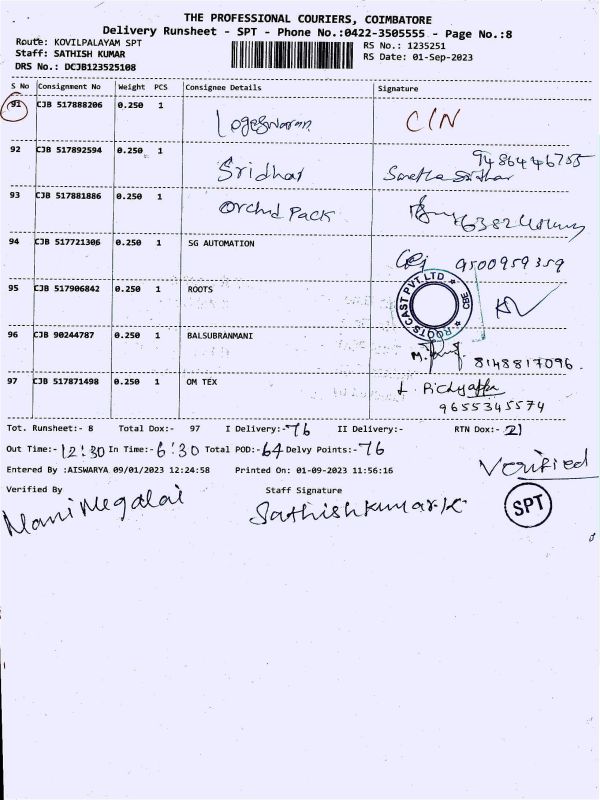 THE PROFESSIONAL COURIERS, COIMBATORE
Delivery Runsheet - SPT - Phone No.:0422-3505555 - Page No.:8
Route: KOVILPALAYAM SPT
RS No.: 1235251
Staff: SATHISH KUMAR
RS Date: 01-Sep-2023
DRS No.: DCJB123525108
S No Consignment No Weight PCS Consignee Details Signature
91 CJB 517888206 0.250 1 Logeswaran C/N
92 CJB 517892594 0.250 1 Sridhar 9486446755
93 CJB 517881886 0.250 1 Orchid Pack
94 CJB 517721306 0.250 1 SG AUTOMATION 9500959359
95 CJB 517906842 0.250 1 ROOTS
ROOTS CAST PVT.LTD CBE
96 CJB 90244787 0.250 1 BALSUBRANMANI 8148817096.
97 CJB 517871498 0.250 1 OM TEX
9655345574
Tot. Runsheet:- 8 Total Dox:- 97 I Delivery:- 76 II Delivery:- RTN Dox:- 21
Out Time:- 12:30 In Time:- 6:30 Total POD:- 64 Delvy Points:- 76
Entered By :AISWARYA 09/01/2023 12:24:58 Printed On: 01-09-2023 11:56:16
Verified
Verified By Staff Signature
Mani Megalai Sathishkumar.K SPT